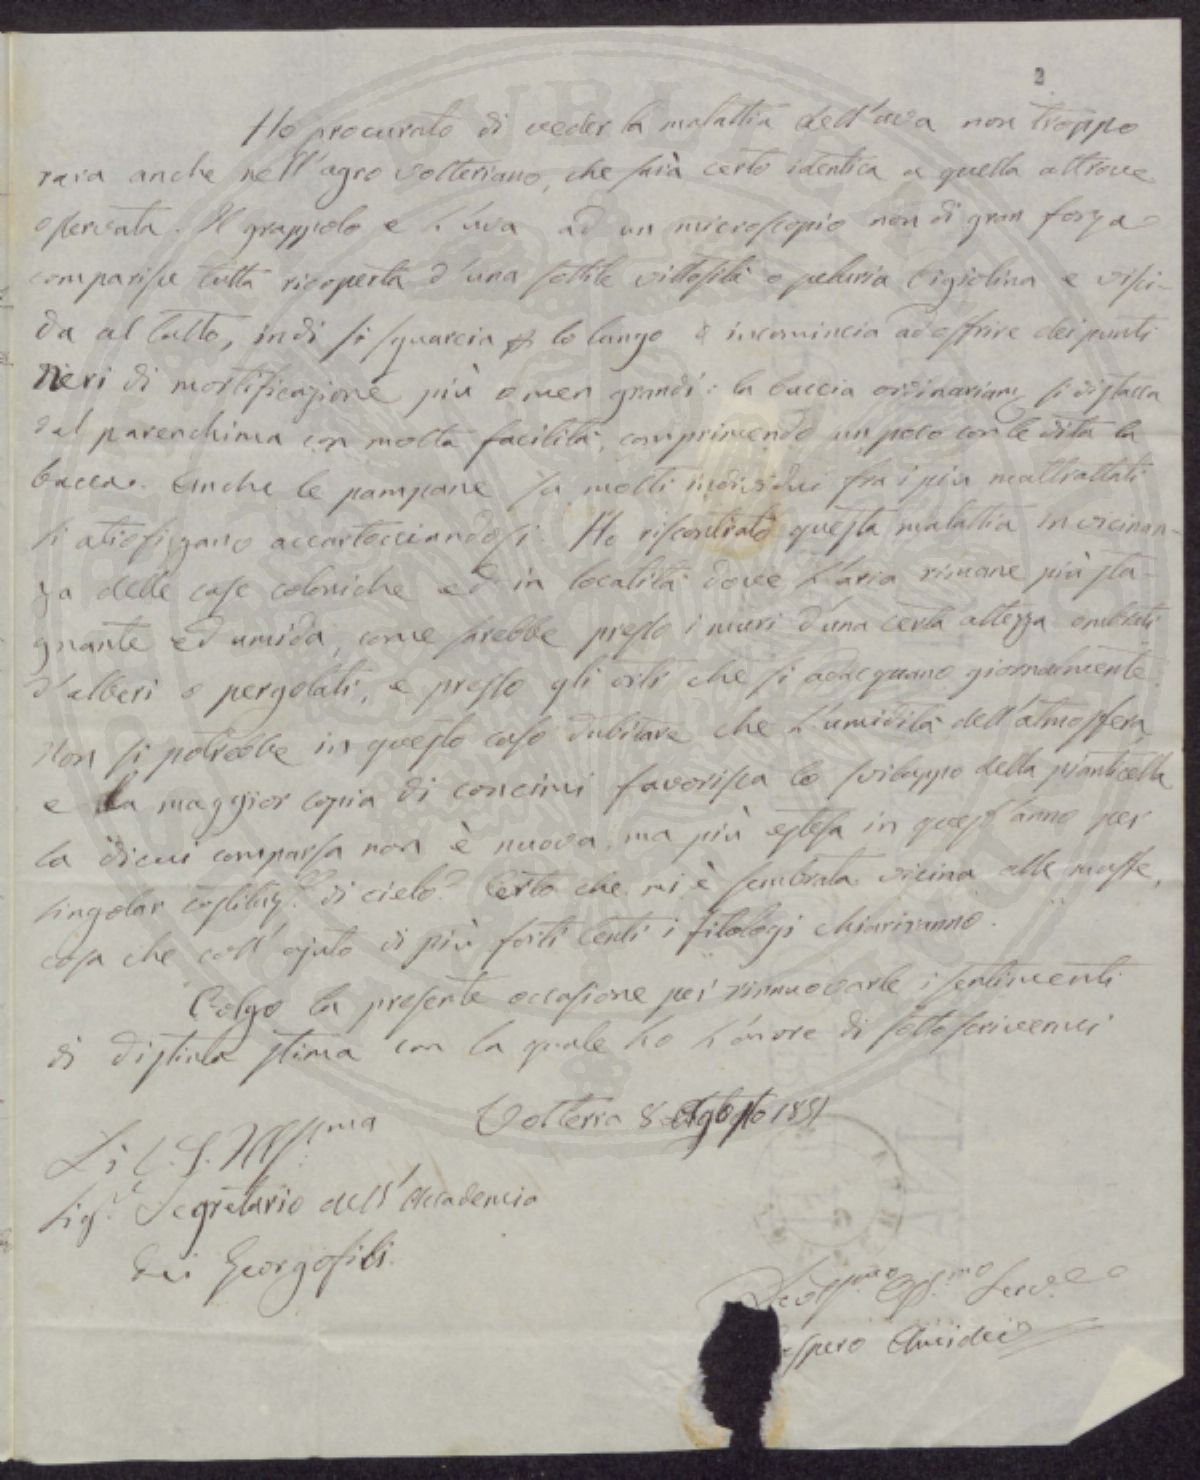 2
Ho procurato di veder la malattia dell'uva non troppo
rara anche nell'agro volteriano, che sarà certo identica a quella altrove
osservata. Il grappolo e l'uva ad un microscopio non di gran forza
comparisce tutta ricoperta d'una sottile villosità o peluria bigiolina e visci-
da al tutto, indi si squarcia lo lungo e incomincia ad offrire dei punti
neri di mortificazione più o men grandi: la buccia ordinariam. si distacca
dal parenchima con molta facilità, comprimendo un poco con le dita la
bacca. Anche le pampane in molti individui fra i più maltrattati
si atrofizzano accartocciandosi. Ho riscontrato questa malattia in vicinan-
za delle case coloniche ed in località dove l'aria rimane più sta-
gnante ed umida, come sarebbe presso i muri d'una certa altezza ombrati
d'alberi o pergolati, e presso gli orti che si adacquano giornalmente.
Non si potrebbe in questo caso dubitare che l'umidità dell'atmosfera
e la maggior copia di concimi favorisca lo sviluppo della pianticella
la di cui comparsa non è nuova, ma più estesa in quest'anno per
singolar costituz.e di cielo? Certo che mi è sembrata vicina alle muffe,
cosa che coll'ajuto di più forti lenti i fitologi chiariranno.
Colgo la presente occasione per rinnuovarle i sentimenti
di distinta stima con la quale ho l'onore di sottoscrivermi
Volterra 8 Agosto 1851
Di V. S. Ill.ma
Sig.r Segretario dell'Accademia
dei Georgofili.
Devot.mo Obb.mo Serv.e
espero Amidei